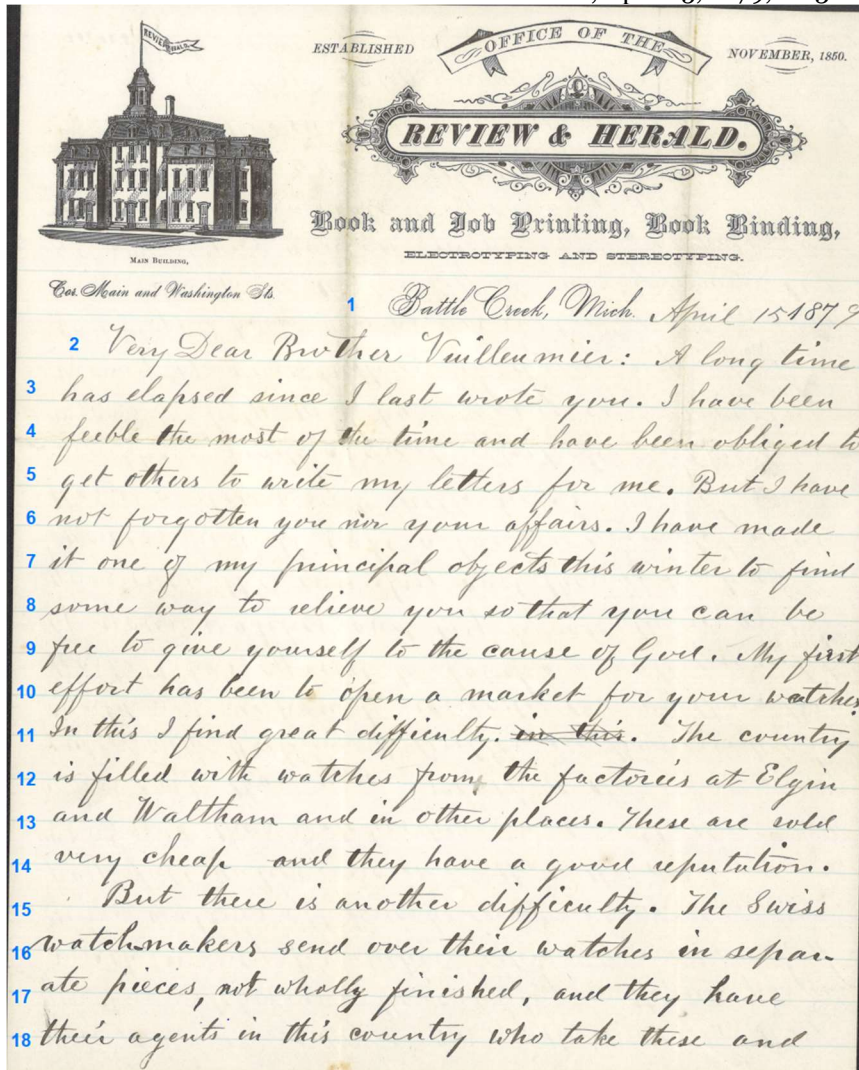 REVIEW & HERALD.
ESTABLISHED
OFFICE OF THE
NOVEMBER, 1850.
REVIEW & HERALD.
Book and Job Printing, Book Binding,
ELECTROTYPING AND STEREOTYPING.
MAIN BUILDING,
Cor. Main and Washington Sts.
1 Battle Creek, Mich. April 15 1879
2 Very Dear Brother Vuilleumier: A long time
3 has elapsed since I last wrote you. I have been
4 feeble the most of the time and have been obliged to
5 get others to write my letters for me. But I have
6 not forgotten you nor your affairs. I have made
7 it one of my principal objects this winter to find
8 some way to relieve you so that you can be
9 free to give yourself to the cause of God. My first
10 effort has been to open a market for your watches.
11 In this I find great difficulty. in this. The country
12 is filled with watches from the factories at Elgin
13 and Waltham and in other places. These are sold
14 very cheap and they have a good reputation.
15 But there is another difficulty. The Swiss
16 watchmakers send over their watches in separ-
17 ate pieces, not wholly finished, and they have
18 their agents in this country who take these and